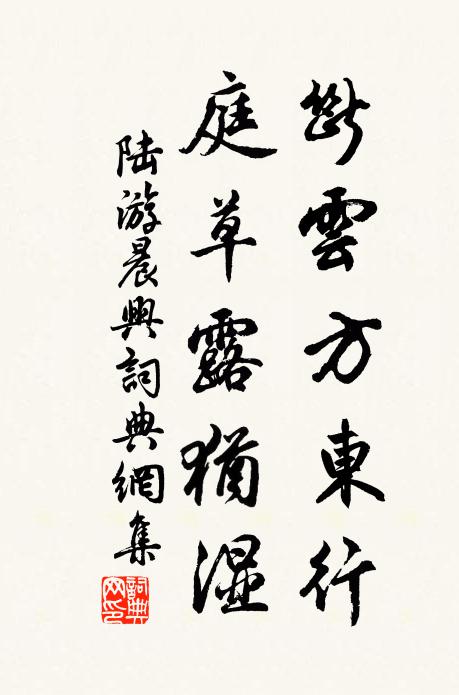 斷雲方東行
庭草露猶湿
陸游晨興詞典網集
詞典網印